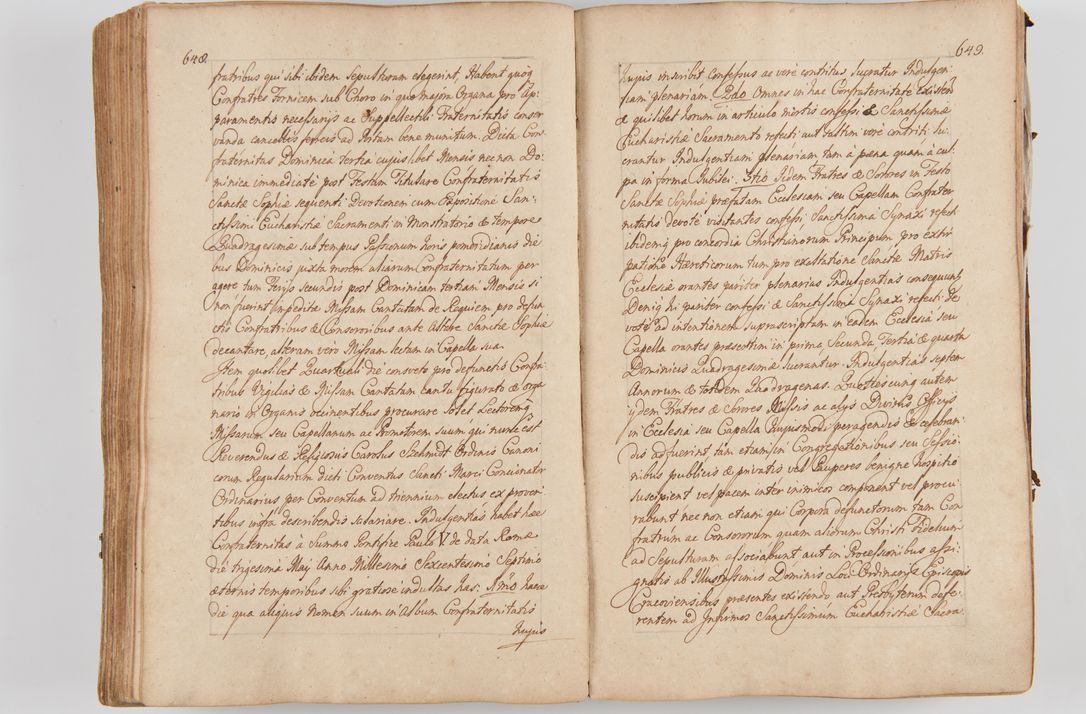 648.
fratribus qui sibi ibidem Sepulturam elegerint, Habent quoq
Confratres Fornicem sub Choro in quo majora Organa pro Ap-
paramentis necessarijs ac Suppellectili Fraternitatis conser
vanda cancellis ferreis ad Portam bene munitum. Dicta Con
fraternitas Dominica Tertia cujuslibet Mensis nec non Do:
minica immediatè post Festum Titulare Confraternitatis
Sanctæ Sophiæ sequenti Devotionem cum Expositione San-
ctissimi Eucharistiæ Sacramenti in Monstratorio & tempore
Quadragesimæ sub tempus Passionum horis pomeridianis die
bus Dominicis juxta morem aliarum Confraternitatum per
agere tum Ferijs secundis post Dominicam tertiam Mensis si
non fuerint impedita Missam Cantatam de Requiem pro defun
ctis Confratribus & Consororibus ante Altare Sanctæ Sophiæ
decantare, alteram verò Missam lectam in Capella sua.
Item quolibet Quartuali die consveto pro defunctis Confra-
tribus Vigilias & Missam Cantatam cantu figurato & orga
nario in Organis occinentibus procurare solet Lectoremq
Missarum seu Capellanum ac Promotorem suum qui nunc est
Reverendus & Religiosus Carolus Szehmidt Ordinis Canoni
corum Regularium dicti Conventus Sancti Marci Concionator
Ordinarius per Conventum ad triennium electus ex proven
tibus infra describendis salariare. Indulgentias habet hæc
Confraternitas à Summo Pontifice Paulo V. de data Romæ
die trigesima Maij Anno Millesimo Sexcentesimo Septimo
æternis temporibus sibi gratiose indultas has: Imò hanc
die qua aliquis Nomen suum in Album Confraternitatis
hujus
649.
hujus inscribit confessus ac verè contritus lucratur Indulgen
tiam plenariam. 2do Omnes in hac Confraternitate existen
& quilibet horum in articulo mortis confessi & Sanctissimæ
Eucharistiæ Sacramento refecti aut saltim verè contriti lu
crantur Indulgentiam plenariam tam à pæna quam à cul
pa in forma Jubilei. 3tio Iidem Fratres & Sorores in Festo
Sanctæ Sophiæ præfatam Ecclesiam seu Capellam Confrater
nitatis devotè visitantes confessi, Sanctissima Synaxi refecti
ibidemq pro concordia Christianorum Principum pro extir
patione Hæreticorum tum pro exaltatione Sanctæ Matris
Ecclesiæ orantes pariter plenarias Indulgentias consequunt
Deniq hi pariter confessi & Sanctissima Synaxi refecti de
votè ad intentionem suprascriptam in eadem Ecclesia seu
Capella orantes præsertim in prima Secunda Tertia & quarta
Dominicis Quadragesimæ lucrantur Indulgentias septem
Annorum & totidem Quadragenas. Quotiescunq autem
ijdem Fratres & Sorores Missis ac alijs Divinis Officijs
in Ecclesia seu Capella hujusmodi peragendis & celebran-
dis adfuerint tam etiam in Congregationibus seu Sessio
nibus publicis & privatis vel Pauperes benigne hospitio
suscipient vel pacem inter inimicos component vel procu
rabunt nec non etiam qui Corpora defunctorum tam Con
fratrum ac Consororum quam aliorum Christi Fidelium
ad Sepulturam associabunt aut in Processionibus assi:
gnatis ab Illustrissimis Dominis Loci Ordinarijs Episcopis
Cracoviensibus præsentes existendo aut Presbyterum defe
rentem ad Infirmos Sanctissimum Eucharistiæ Sacra-